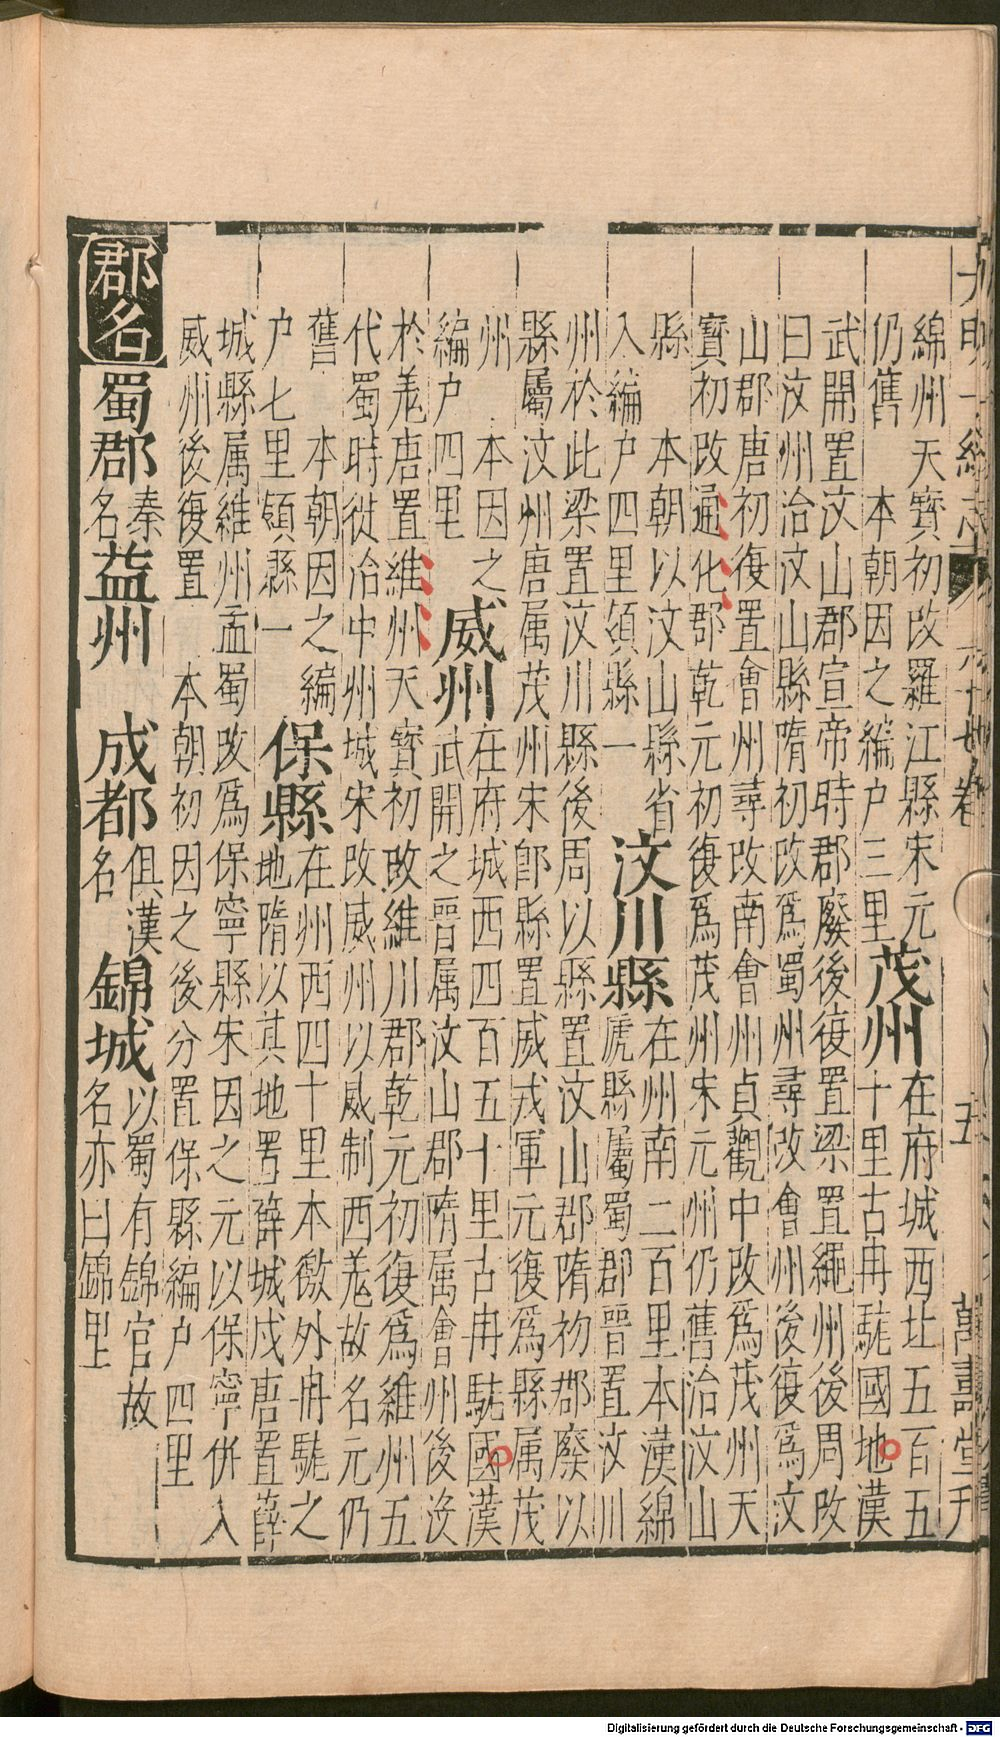 大明一統志 六十七卷 五 萬壽堂刋
綿州天寶初改羅江縣宋元
仍舊 本朝因之編户三里
茂州
在府城西北五百五
十里古冉駹國地漢
武開置汶山郡宣帝時郡廢後復置梁置繩州後周改
曰汶州治汶山縣隋初改爲蜀州尋改會州後復爲汶
山郡唐初復置會州尋改南會州貞觀中改爲茂州天
寳初改通化郡乾元初復爲茂州宋元州仍舊治汶山
縣 本朝以汶山縣省
入編户四里領縣一
汶川縣
在州南二百里本漢綿
虒縣屬蜀郡晉置汶川
州於此梁置汶川縣後周以縣置汶山郡隋初郡廢以
縣屬汶州唐属茂州宋卽縣置威戎軍元復爲縣属茂
州 本因之
編户四里
威州
在府城西四百五十里古冉駹國漢
武開之晉属汶山郡隋属會州後没
於羗唐置維州天寳初改維川郡乾元初復爲維州五
代蜀時徙治中州城宋改威州以威制西羗故名元仍
舊 本朝因之編
户七里領縣一
保縣
在州西四十里本徼外冉駹之
地隋以其地置薛城戍唐置薛
城縣属維州孟蜀改爲保寧縣宋因之元以保寧併入
威州後復置 本朝初因之後分置保縣編户四里
郡名
蜀郡
秦
名
益州 成都
俱漢
名
錦城
以蜀有錦官故
名亦曰錦里
Digitalisierung gefördert durch die Deutsche Forschungsgemeinschaft - DFG